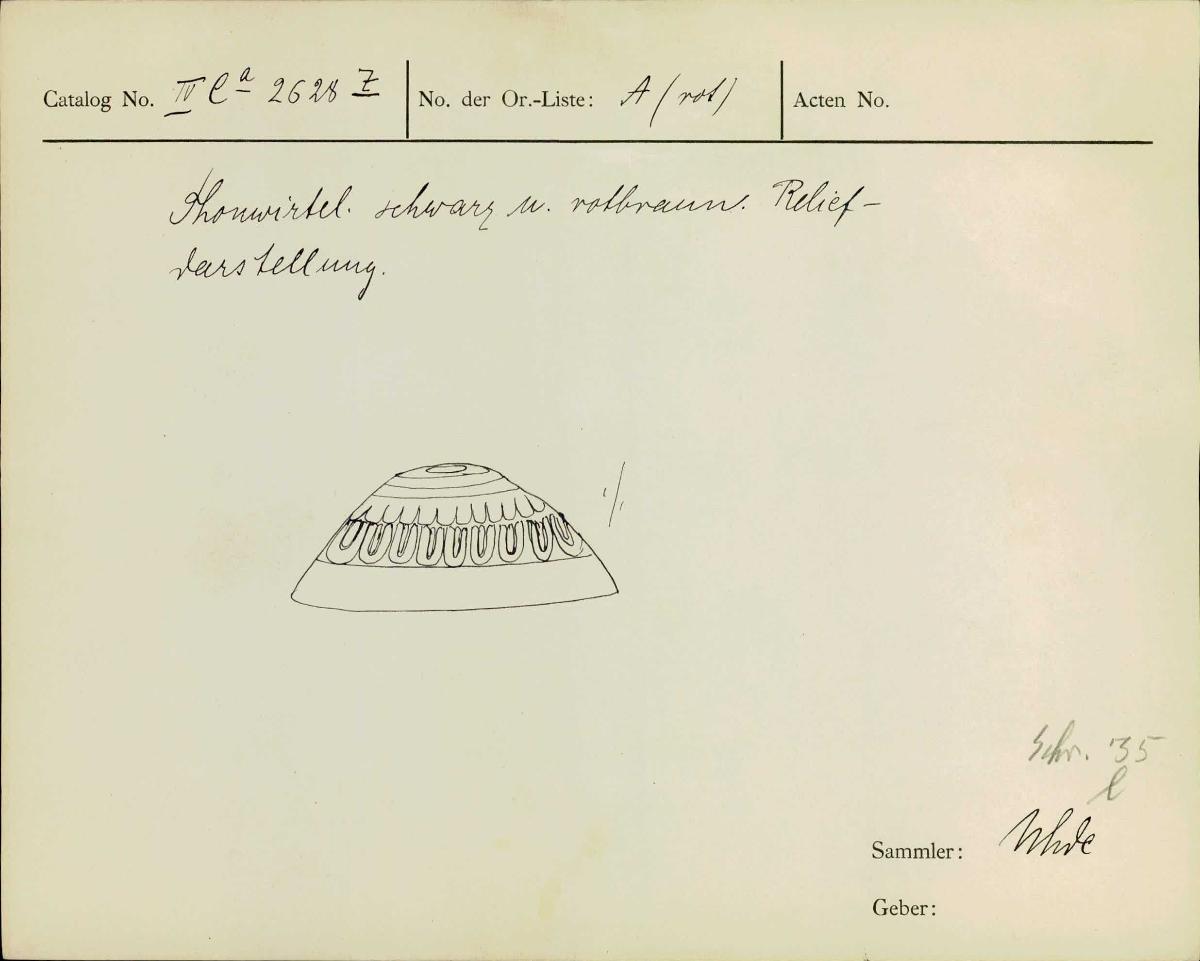 Catalog No. IV Ca 2628 z No. der Or.-Liste: A (rot) Acten No.
Thonwirtel. schwarz u. rotbraun. Relief-
darstellung.
1/1
Schr. 35
l
Sammler: Uhde
Geber: